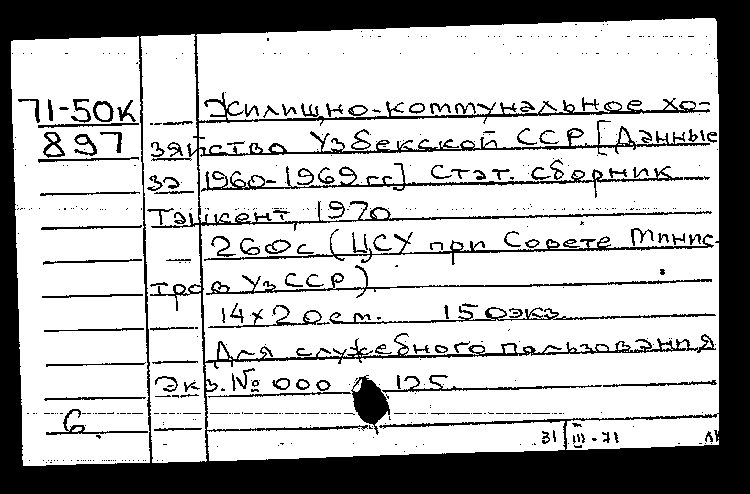 71-50к Жилищно-коммунальное хо-
897 зяйство Узбекской ССР. [Данные
за 1960-1969 гг.] Стат. сборник
Ташкент, 1970
260с (ЦСУ при Совете Минис-
тров УзССР)
14×20 ст. 150экз.
Для служебного пользования
Экз. № 000 125.
6.
31/III-71